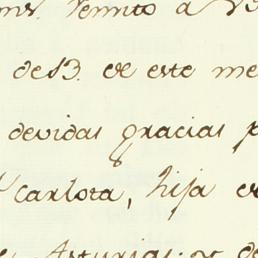 remito a
de 13. de este me
devidas gracias p
Carlota, hija
Asturias: y de